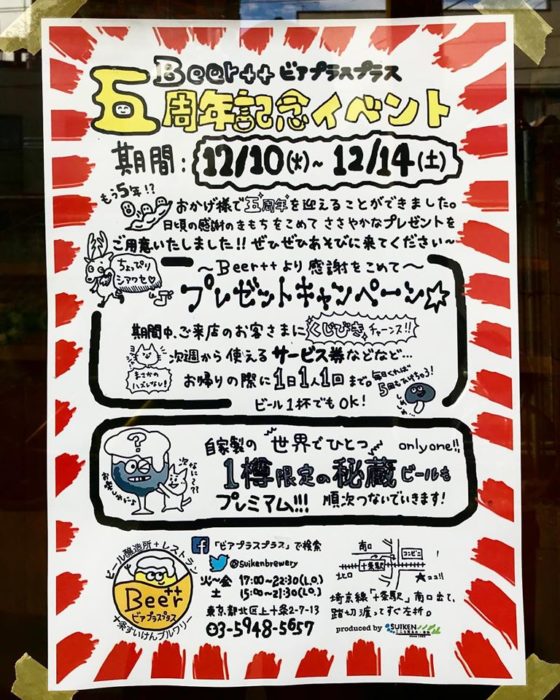 Beer++ ビアプラスプラス
五周年記念イベント
期間:12/10(火)~12/14(土)
もう5年!?
おかげ様で五周年を迎えることができました。
日頃の感謝のきもちをこめて ささやかなプレゼントを
ご用意いたしました!! ぜひぜひあそびに来てください~
ちょっぴり
シアワセ
~Beer++より感謝をこめて~
プレゼントキャンペーン☆
期間中、ご来店のお客さまに くじびきチャーンス!!
次週から使えるサービス券などなど…
まさかの
ハズレなし!
お帰りの際に1日1人1回まで。
毎日くれば
5回もひけちゃう!
ビール1杯でもOK!
?
お楽しみに♪
次なに~?!
自家製の 世界でひとつ only one!!
1樽限定の秘蔵ビールも
プレミアム!!! 順次つないでいきます!
ビール醸造所+レストラン
Beer++
ビアプラスプラス
十条すいけんブルワリー
「ビアプラスプラス」で検索
@suikenbrewery
火~金 17:00~22:30(L.O.)
土 15:00~21:30(L.O.)
東京都北区上十条2-7-13
03-5948-5657
南口
コンビニ
十条駅
北口
★ココ!!
埼京線「十条駅」南口出て、
踏切渡ってすぐ左折。
produced by SUIKEN